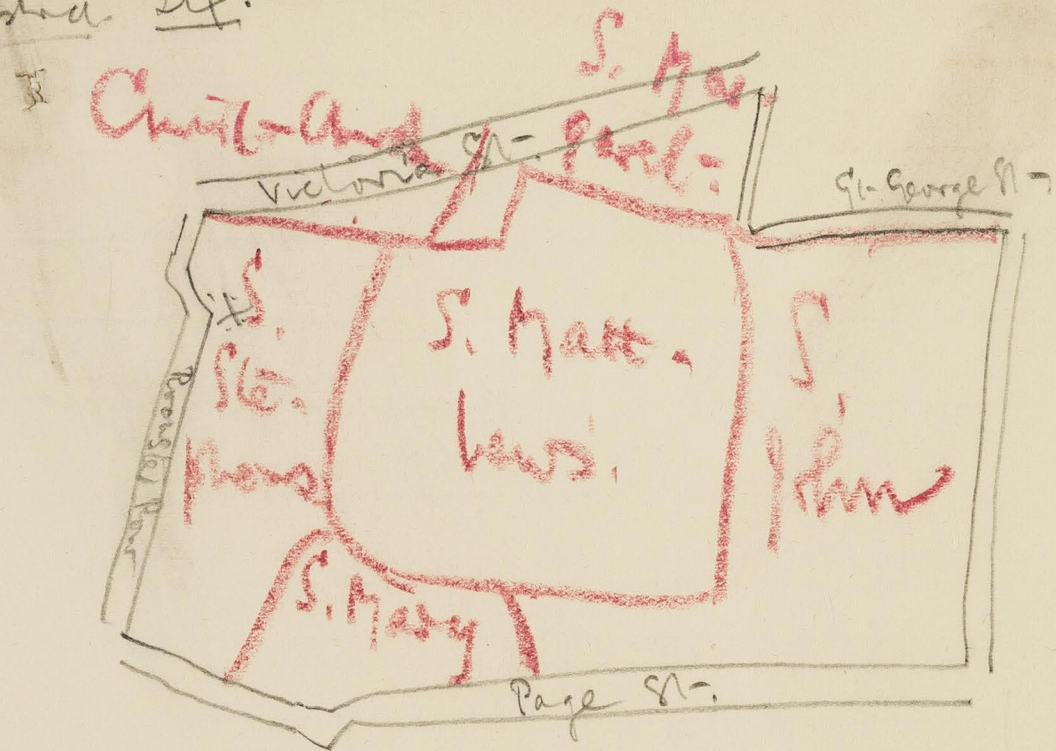 S. Ma
Christ-Church
Part.
Victoria St.
Gt. George St.
S.
Ste.
phens
S. Matt.
hews.
S.
John
Rochester Row
S. Mary
Page St.